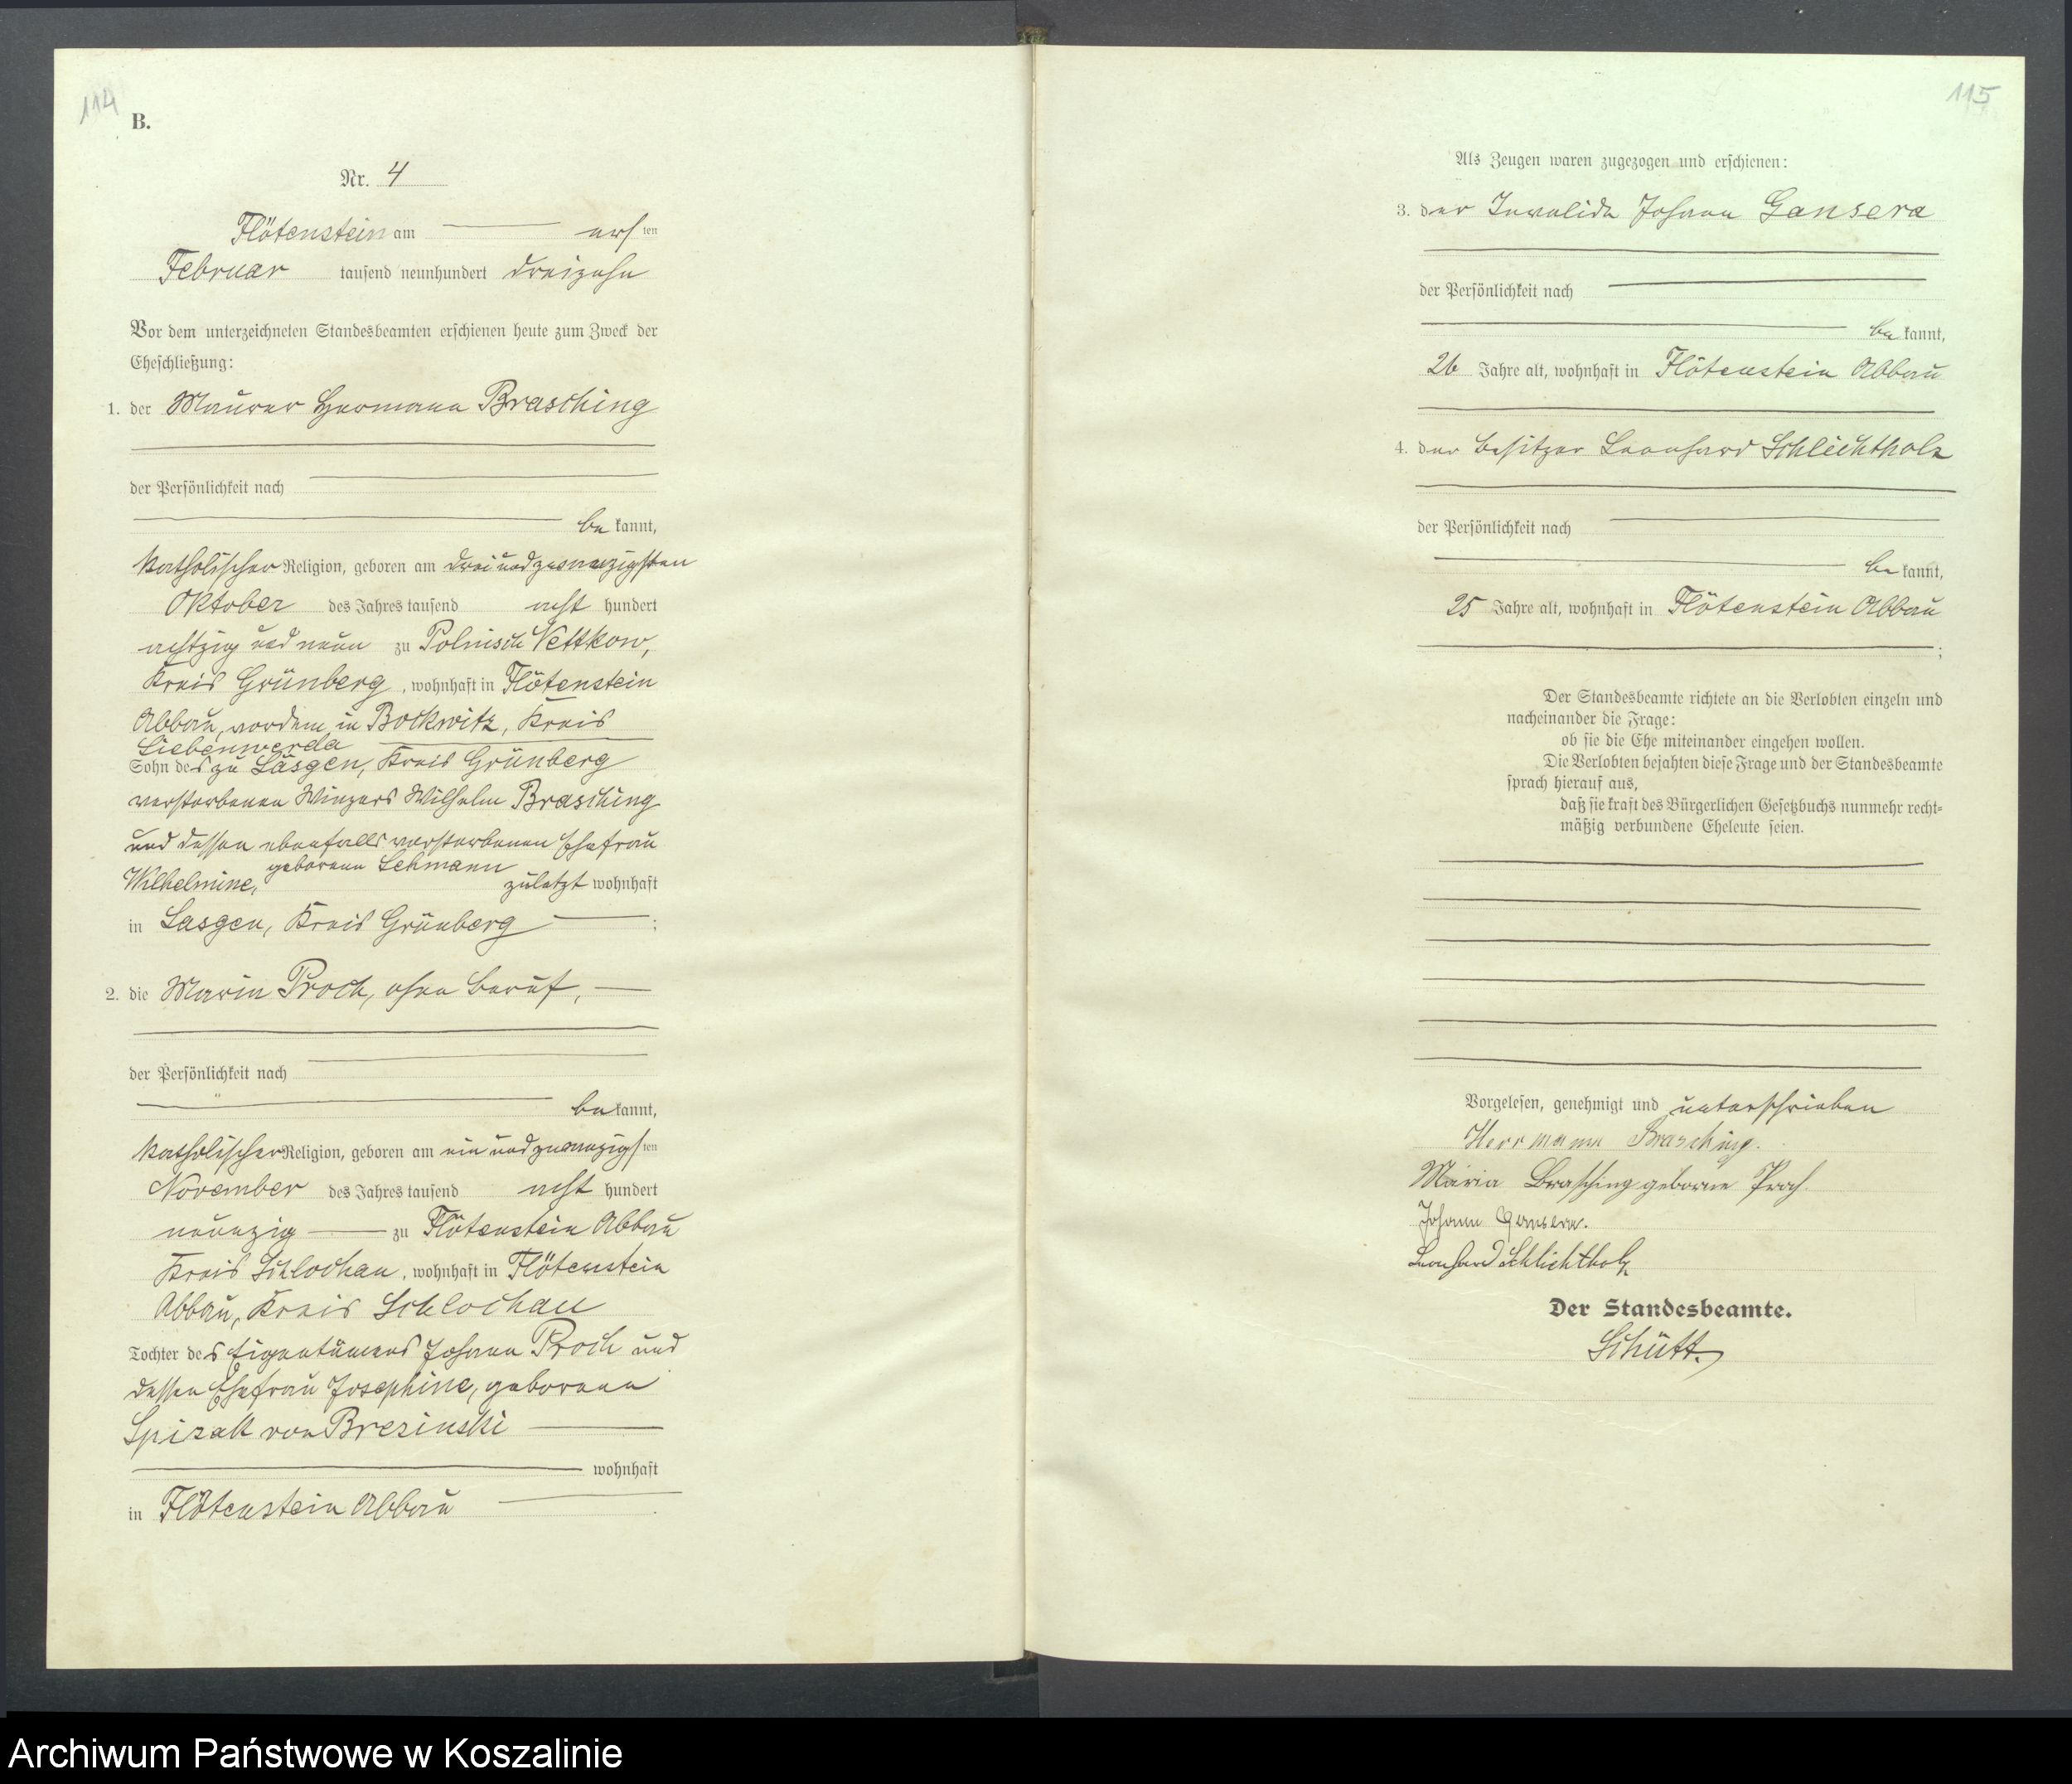 114
B.
Nr. 4
Flötenstein am ersten
Februar tausend neunhundert dreizehn
Vor dem unterzeichneten Standesbeamten erschienen heute zum Zweck der
Eheschließung:
1. der Maurer Hermann Brasching
der Persönlichkeit nach
be kannt,
katholischer Religion, geboren am dreiundzwanzigsten
Oktober des Jahres tausend acht hundert
achtzig und neun zu Polnisch Nettkow,
Kreis Grünberg, wohnhaft in Flötenstein
Abbau, vordem in Bockwitz, Kreis
Liebenwerda
Sohn des zu Läsgen, Kreis Grünberg
verstorbenen Winzers Wilhelm Brasching
und dessen ebenfalls verstorbenen Ehefrau
Wilhelmine, geborene Lehmann zuletzt wohnhaft
in Lasgen, Kreis Grünberg ;
2. die Maria Proch, ohne Beruf,
der Persönlichkeit nach
be kannt,
katholischer Religion, geboren am ein und zwanzigsten
November des Jahres tausend acht hundert
neunzig zu Flötenstein Abbau
Kreis Schlochau, wohnhaft in Flötenstein
Abbau, Kreis Schlochau
Tochter des Eigentümers Johann Proch und
dessen Ehefrau Josephine, geborene
Spizak von Brezinski
wohnhaft
in Flötenstein Abbau
115
Als Zeugen waren zugezogen und erschienen:
3. der Invalide Johann Gansera
der Persönlichkeit nach
be kannt,
26 Jahre alt, wohnhaft in Flötenstein Abbau
4. der Besitzer Leonhard Schlichtholz
der Persönlichkeit nach
be kannt,
25 Jahre alt, wohnhaft in Flötenstein Abbau
;
Der Standesbeamte richtete an die Verlobten einzeln und
nacheinander die Frage:
ob sie die Ehe miteinander eingehen wollen.
Die Verlobten bejahten diese Frage und der Standesbeamte
sprach hierauf aus,
daß sie kraft des Bürgerlichen Gesetzbuchs nunmehr recht=
mäßig verbundene Eheleute seien.
Vorgelesen, genehmigt und unterschrieben
Herrmann Brasching.
Maria Brasching geborne Proch.
Johann Gansera.
Leonhard Schlichtholz
Der Standesbeamte.
Schütt.
Archiwum Państwowe w Koszalinie